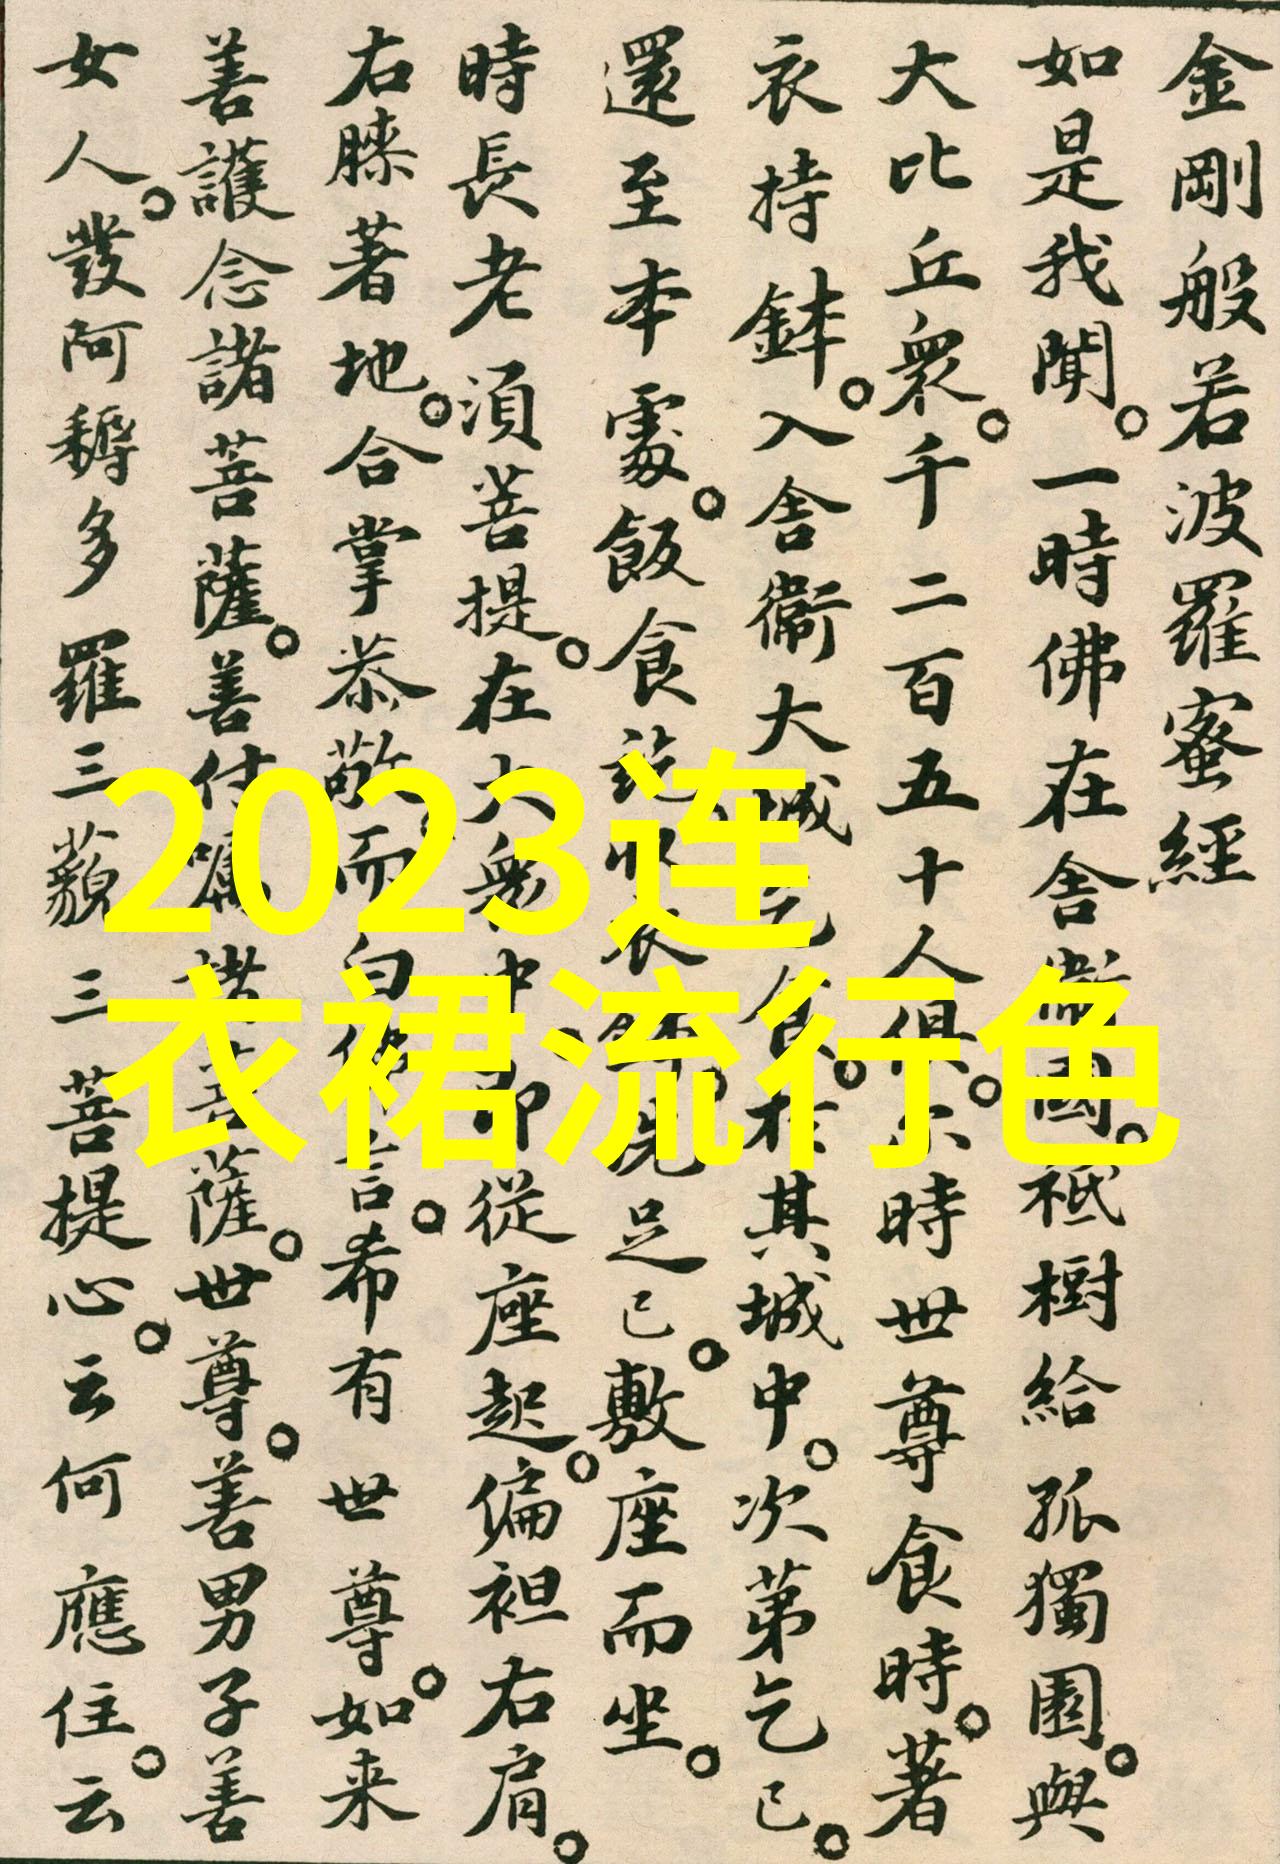 金剛般若波羅蜜經
如是我聞。一時佛在舍衞國。祗樹給孤獨園。與
大比丘衆。千二百五十人俱。尒時世尊食時。著
衣持鉢。入舍衞大城乞食。於其城中。次第乞已。
還至本處。飯食訖收衣鉢。洗足已。敷座而坐。
時長老湏菩提。在大衆中。即從座起。偏袒右肩。
右膝著地。合掌恭敬。而白佛言。希有世尊。如来
善護念諸菩薩。善付囑諸菩薩。世尊。善男子善
女人。發阿耨多羅三藐三菩提心。云何應住。云
2023连
衣裙流行色